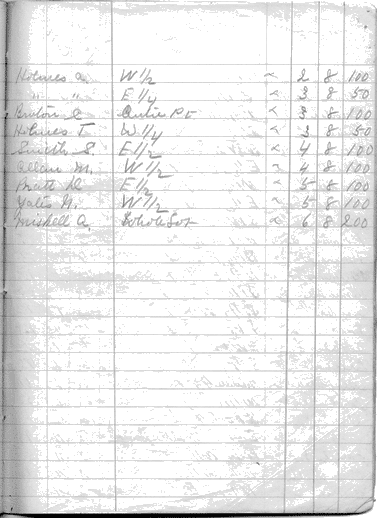 Holmes A. W 1/2 " 2 8 100
" " E 1/4 " 3 8 50
Burton C Centre Pt " 3 8 100
Holmes T. W 1/4 " 3 8 50
Smith S. E 1/2 " 4 8 100
Allan M. W 1/2 " 4 8 100
Pratt D E 1/2 " 5 8 100
Yates G. W 1/2 " 5 8 100
Mishell A. Whole Lot " 6 8 200